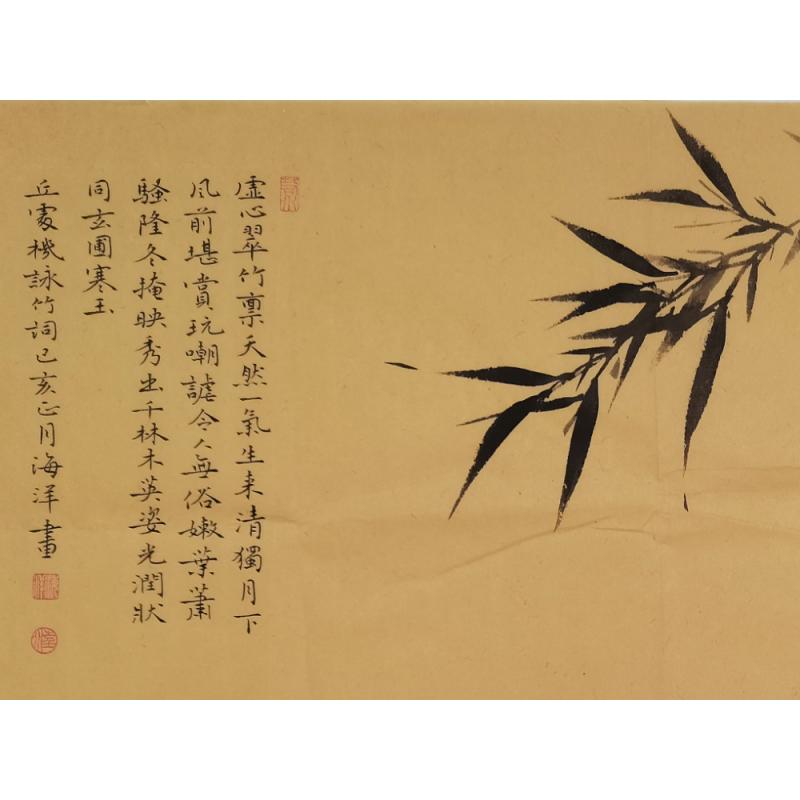 虛心翠竹稟天然一氣生來清獨月下
風前堪賞玩嘲謔令人無俗嫩葉蕭
騷隆冬掩映秀出千林木英姿光潤狀
同玄圃寒玉
丘處機詠竹詞己亥正月海洋畫